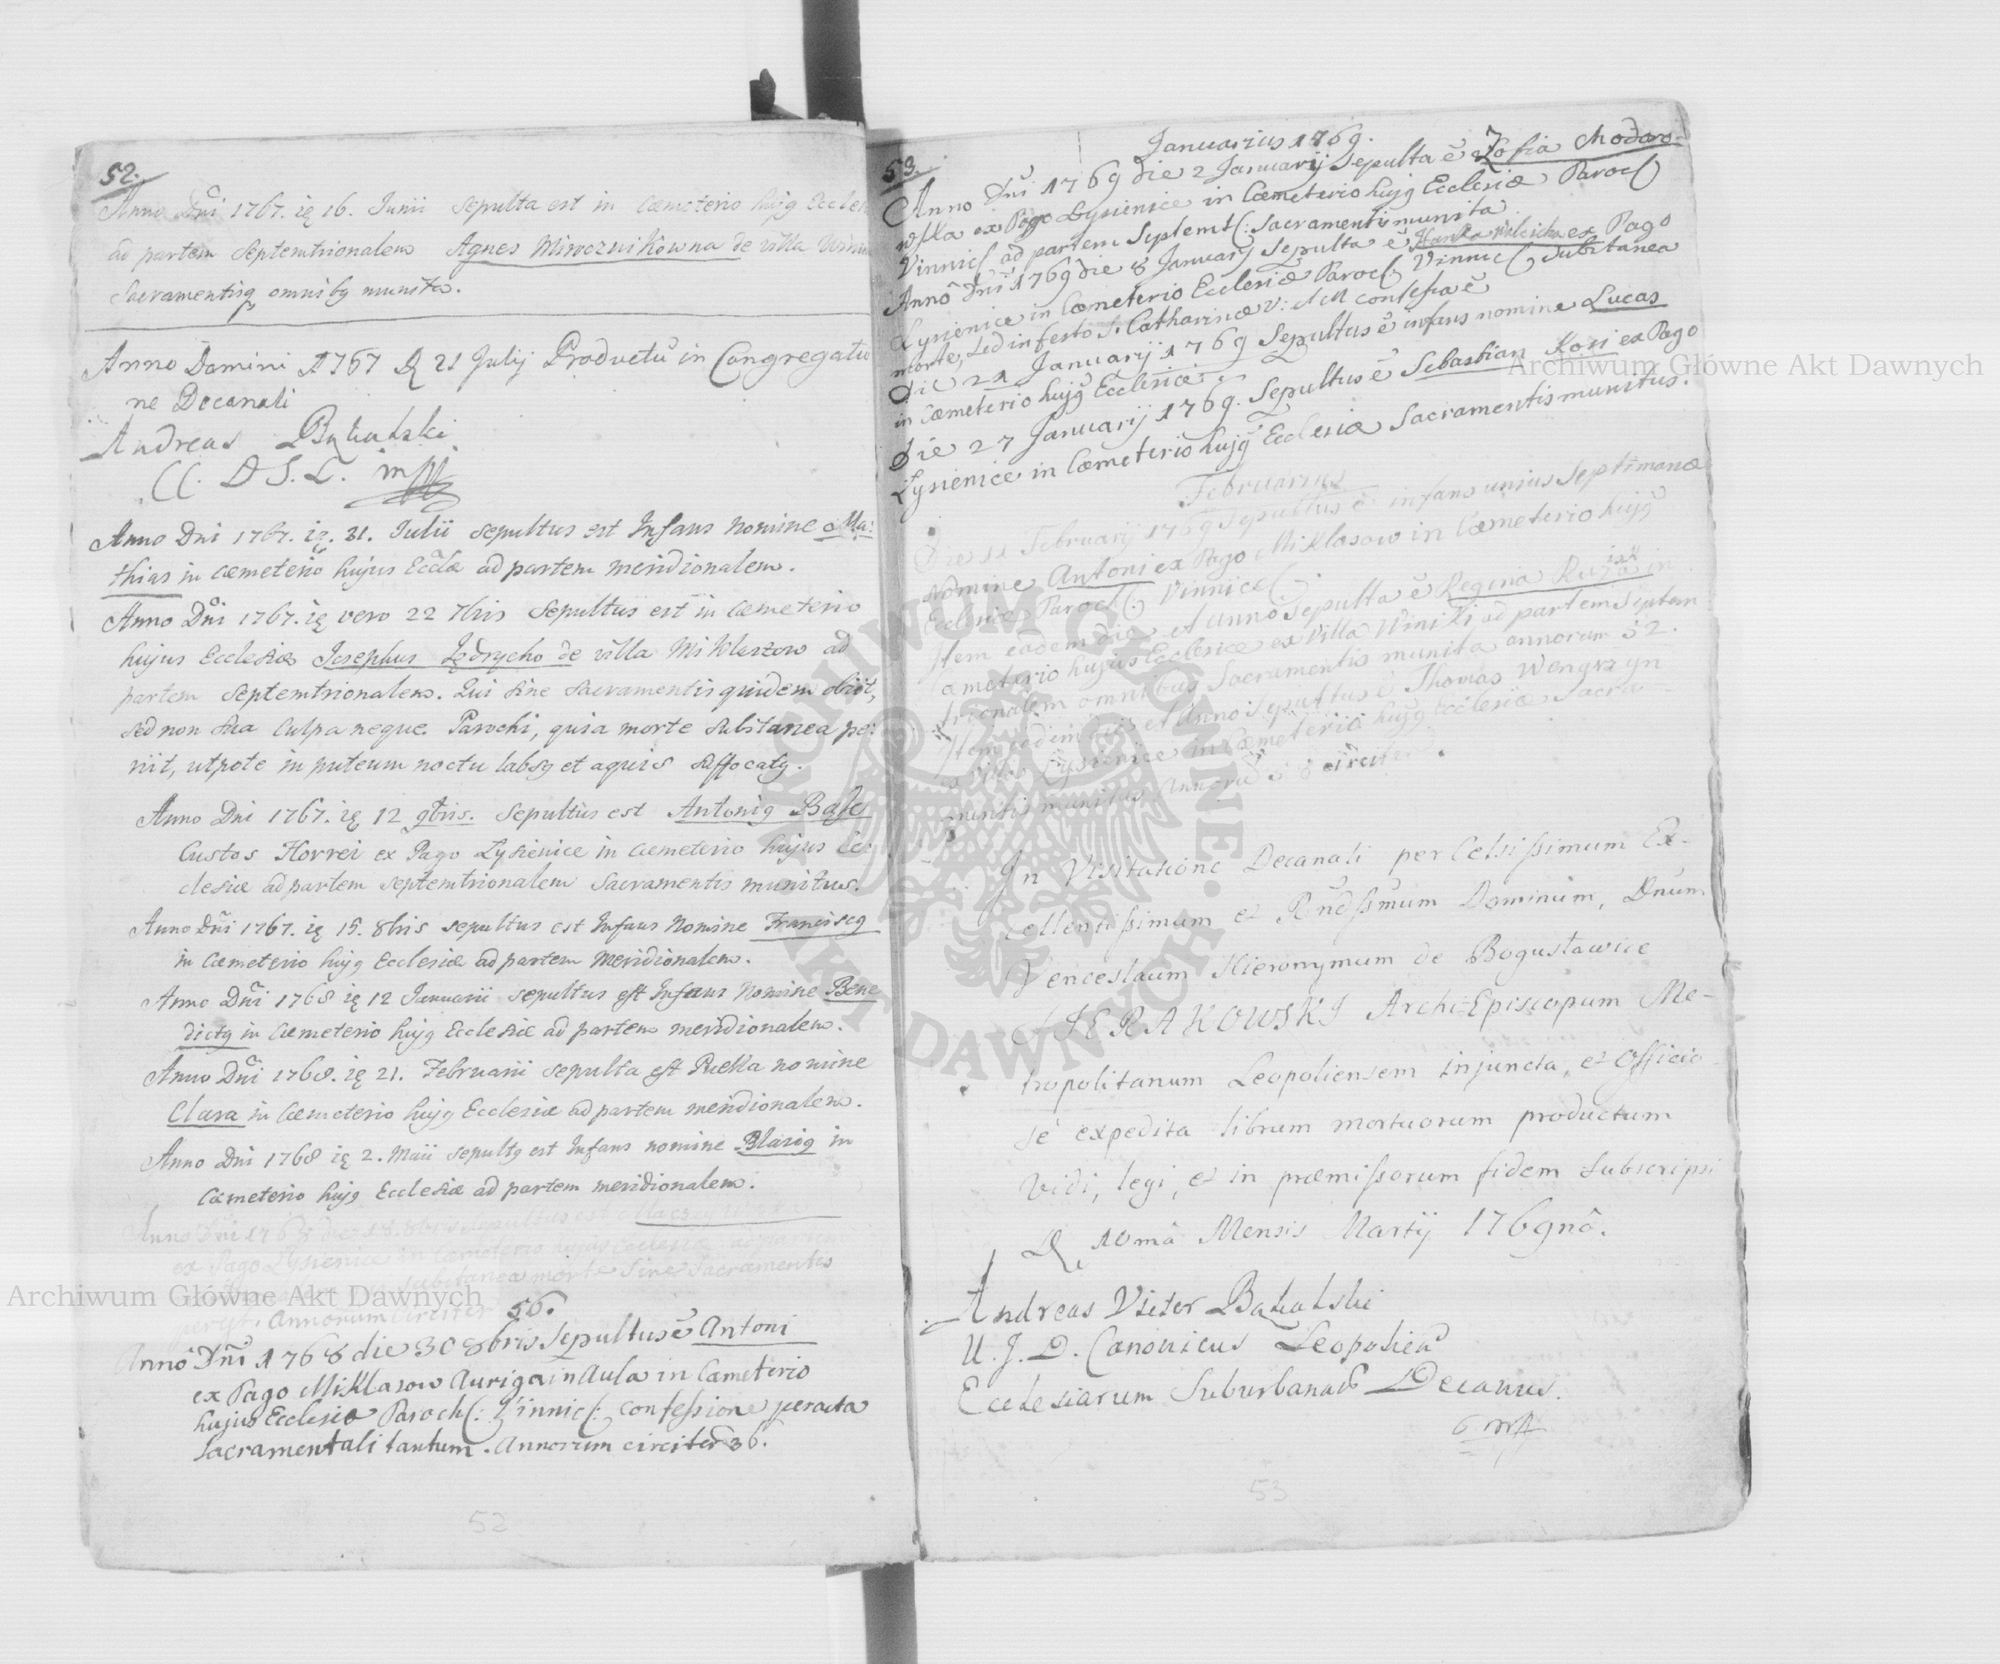 52.
Anno Dni 1767. ię 16. Junii sepulta est in Cœmeterio hujg Eccles
ad partem Septemtrionalem Agnes Mirocznikowna de villa Winni
Sacramentisq omnibg munita.
Anno Domini 1767 D 21 Julij Productu in Congregatio
ne Decanali
Andreas
CC. D S. L. mpp
Anno Dni 1767. ię. 31. Julii sepultus est Infans Nomine Ma:
thias in Cœmeterio hujus Eccla ad partem meridionalem.
Anno Dni 1767. ię vero 22 7bris Sepultus est in Cœmeterio
hujus Ecclesiæ Josephus Jędrycho de villa Miklaszow ad
partem Septemtrionalem. Qui sine sacramentis quidem obiit,
sed non sua Culpa neque Parochi, quia morte subitanea pe:
riit, utpote in puteum noctu labsg et aquis suffocatg.
Anno Dni 1767. ię 12 9bris. Sepultus est Antonig
Custos Horrei ex Pago Lysienice in Cœmeterio hujus Ec
clesiæ ad partem septemtrionalem Sacramentis munitus.
Anno Dni 1767. ię 15. 8bris sepultus est Infans Nomine Franciscg
in Cœmeterio hujg Ecclesiæ ad partem Meridionalem.
Anno Dni 1768 ię 12 Januarii sepultus est Infans Nomine Bene
dictg in Cœmeterio hujg Ecclesiæ ad partem meridionalem.
Anno Dni 1768. ię 21. Februarii sepulta est Puella nomine
Clara in Cœmeterio hujg Ecclesiæ ad partem meridionalem.
Anno Dni 1768 ię 2. Maii sepultg est Infans nomine Blasig in
Cœmeterio hujg Ecclesiæ ad partem meridionalem.
Anno Dni 1768 die 18. 8bris Sepultus est
ex Pago Lysienice in Cœmeterio hujus Ecclesiæ ad partem
subitanea morte Sine Sacramentis
Annorum Circiter 56.
Anno Dni 1768 die 30 8bris Sepultus ē Antoni
ex Pago Miklasow Auriga in Aula in Cœmeterio
hujus Ecclesiæ Paroch: Vinnic: Confessione peracta
Sacramentali tantum. Annorum circiter 36.
52
53.
Januarius 1769.
Anno Dni 1769 die 2 Januarij Sepulta ē Zofia Chodoro-
wska ex Pago Lysienice in Cœmeterio hujg Ecclesiæ Paroc
Vinnic ad partem Septemt: Sacramentis munita
Anno Dni 1769 die 8 January Sepulta ē Hanka ex Pago
Lysienice in Cœmeterio Ecclesiæ Paroc Vinnic Subitanea
morte, sed in festo S. Catharinæ V: et M confessa ē
Die 21 Januarij 1769 Sepultus ē infans nomine Lucas
in Cœmeterio hujg Ecclesiæ
Die 27 Januarij 1769. Sepultus ē Sebastian Kosi ex Pago
Lysienice in Cœmeterio hujg Ecclesiæ Sacramentis munitus.
Februarius
Die 11 February 1769 Sepultus ē infans unius Septimanæ
nomine Antoni ex Pago Miklasow in Cœmeterio hujg
Ecclesiæ Paroc Vinnic
Item eadem die et Anno sepulta ē Regina in
Cœmeterio hujus Ecclesiæ ex Villa Winiki ad partem Septem
trionalem omnibus Sacramentis munita annorum 52.
Item eodem die et Anno Sepultus ē Thomas Wengrzyn
ex Villa Lysienice in Cœmeterio hujg Ecclesiæ Sacra
mentis munitus, Annoru circiter.
In Visitatione Decanali per Celsissimum Ex-
cellentissimum et Rndssimum Dominum, Dnum
Venceslaum Hieronymum de Bogusławice
SIERAKOWSKI Archi-Episcopum Me-
tropolitanum Leopoliensem injuncta, et officio
se expedita librum mortuorum productum
vidi, legi, et in præmissorum fidem Subscripsi
D 10mâ Mensis Martij 1769nô.
Andreas Victor
U. J. D. Canonicus Leopolien
Ecclesiarum Suburbanar Decanus.
mpp
53
Archiwum Główne Akt Dawnych
Archiwum Główne Akt Dawnych
ARCHIWUM GŁÓWNE AKT DAWNYCH